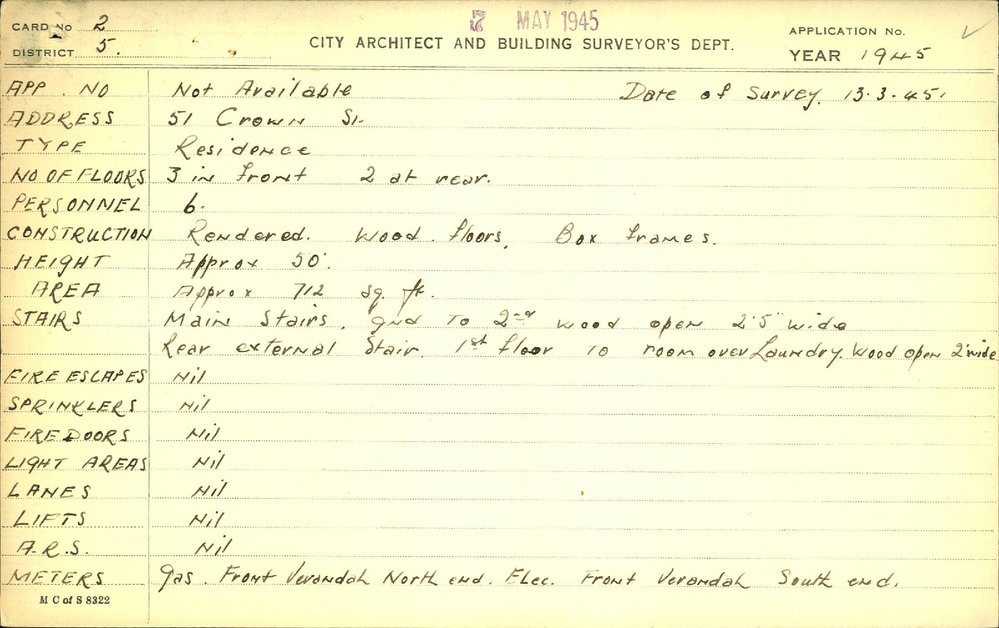 CARD No 2
7 MAY 1945
APPLICATION No.
DISTRICT 5.
CITY ARCHITECT AND BUILDING SURVEYOR'S DEPT.
YEAR 1945
APP. NO Not Available Date of Survey. 13.3.45.
ADDRESS 51 Crown St
TYPE Residence
NO OF FLOORS 3 in front 2 at rear.
PERSONNEL 6.
CONSTRUCTION Rendered. Wood floors, Box frames.
HEIGHT Approx 30'.
AREA Approx 712 sq. ft.
STAIRS Main Stairs. gnd to 2nd wood open 2'5" wide
Rear external Stair. 1st floor to room over Laundry. Wood open 2' wide
FIRE ESCAPES Nil
SPRINKLERS Nil
FIRE DOORS Nil
LIGHT AREAS Nil
LANES Nil
LIFTS Nil
A.R.S. Nil
METERS Gas. Front Verandah North end. Elec. Front Verandah South end.
M C of S 8322